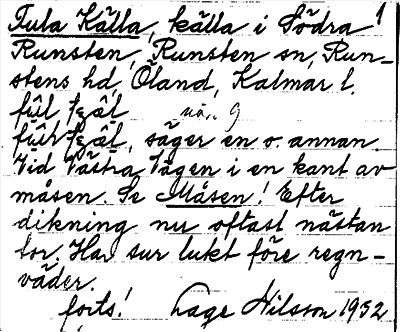 Fula Källa, källa i Södra 1
Runsten, Runsten sn, Run-
stens hd, Öland, Kalmar l.
fûl,
fûl säger en o. annan.
Vid Västra Vägen i en kant av
måsen. Se Måsen! Efter
dikning nu oftast nästan
tor. Har sur lukt före regn-
väder.
forts! Lage Nilsson 1932